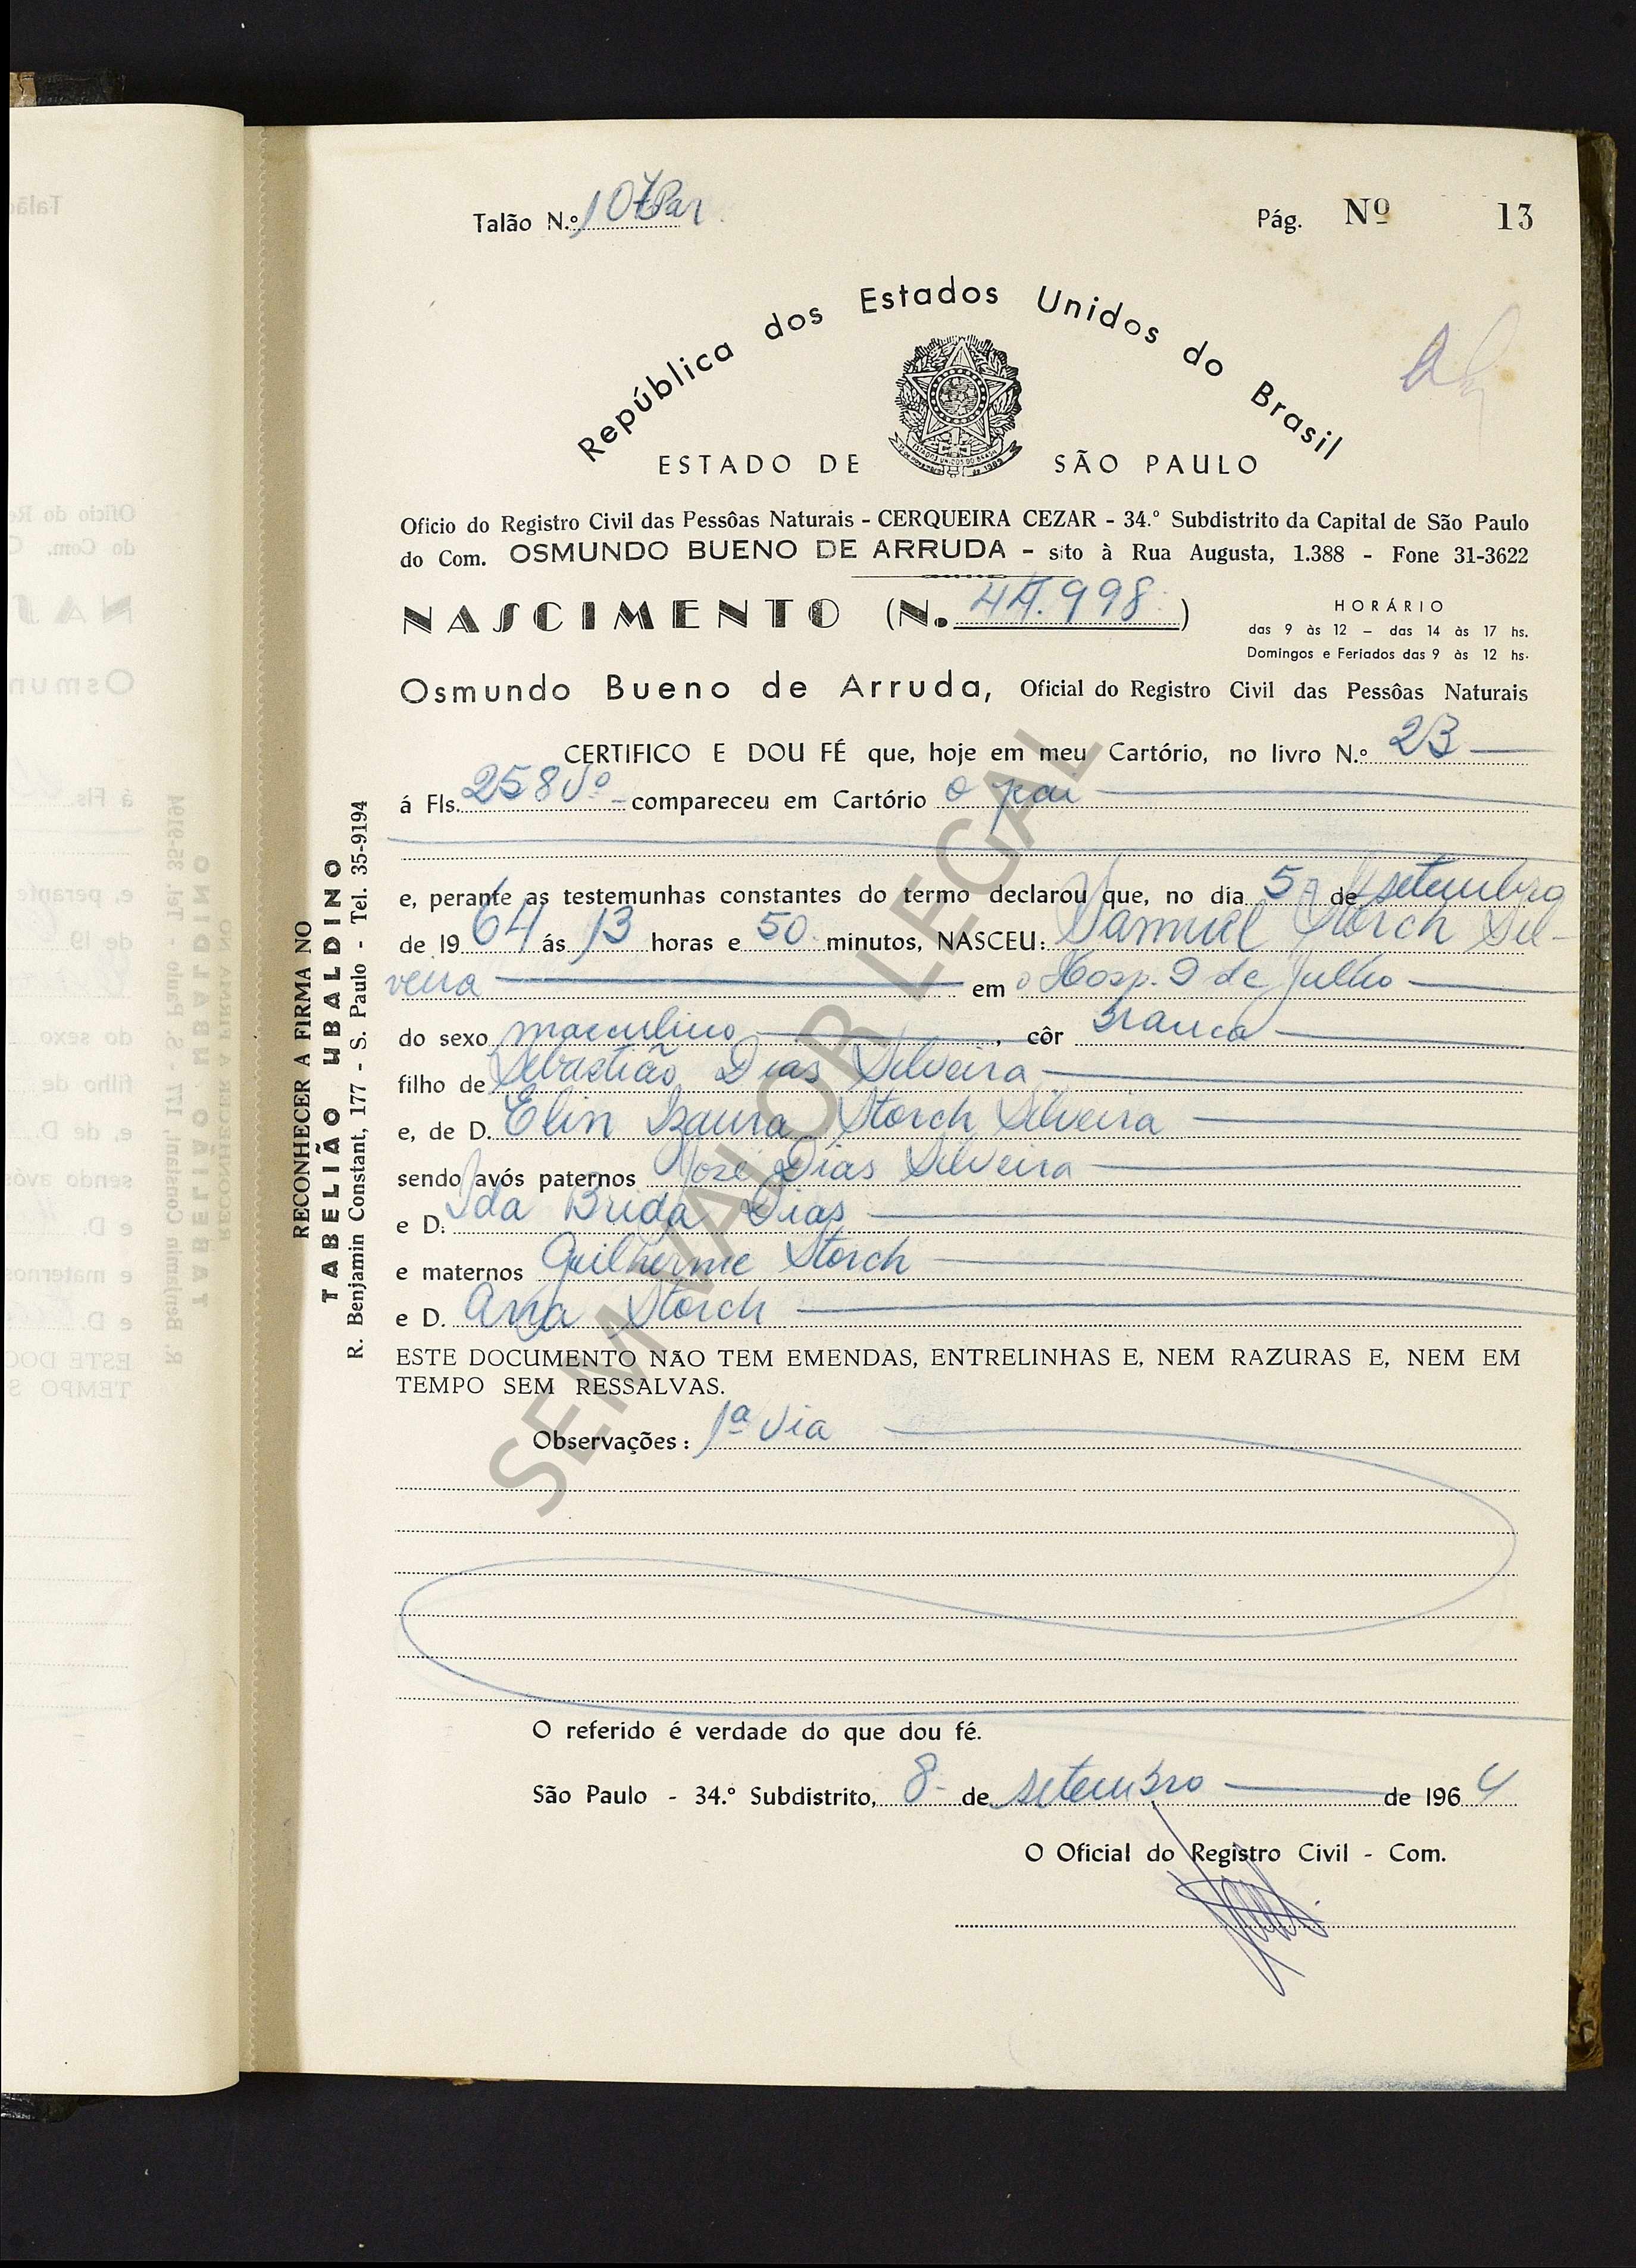 Talão N.º 107 Par
Pág. Nº 13
República dos Estados Unidos do Brasil
ESTADO DE SÃO PAULO
Oficio do Registro Civil das Pessôas Naturais - CERQUEIRA CEZAR - 34.º Subdistrito da Capital de São Paulo
do Com. OSMUNDO BUENO DE ARRUDA - sito à Rua Augusta, 1.388 - Fone 31-3622
NASCIMENTO (N. 44.998)
HORÁRIO
das 9 às 12 – das 14 às 17 hs.
Domingos e Feriados das 9 às 12 hs.
Osmundo Bueno de Arruda, Oficial do Registro Civil das Pessôas Naturais
CERTIFICO E DOU FÉ que, hoje em meu Cartório, no livro N.º 23
á Fls. 258 Vº compareceu em Cartório o pai
e, perante as testemunhas constantes do termo declarou que, no dia 5 de setembro
de 1964 ás 13 horas e 50 minutos, NASCEU: Samuel Storch Sil-
veira em o Hosp. 9 de Julho
do sexo masculino, côr branca
filho de Sebastião Dias Silveira
e, de D. Elin Izaura Storch Silveira
sendo avós paternos José Dias Silveira
e D. Ida Brida Dias
e maternos Guilherme Storch
e D. Ana Storch
ESTE DOCUMENTO NÃO TEM EMENDAS, ENTRELINHAS E, NEM RAZURAS E, NEM EM
TEMPO SEM RESSALVAS.
Observações: 1ª via
O referido é verdade do que dou fé.
São Paulo - 34.º Subdistrito, 8 de setembro de 1964
O Oficial do Registro Civil - Com.
RECONHECER A FIRMA NO
TABELIÃO UBALDINO
R. Benjamin Constant, 177 - S. Paulo - Tel. 35-9194
SEM VALOR LEGAL